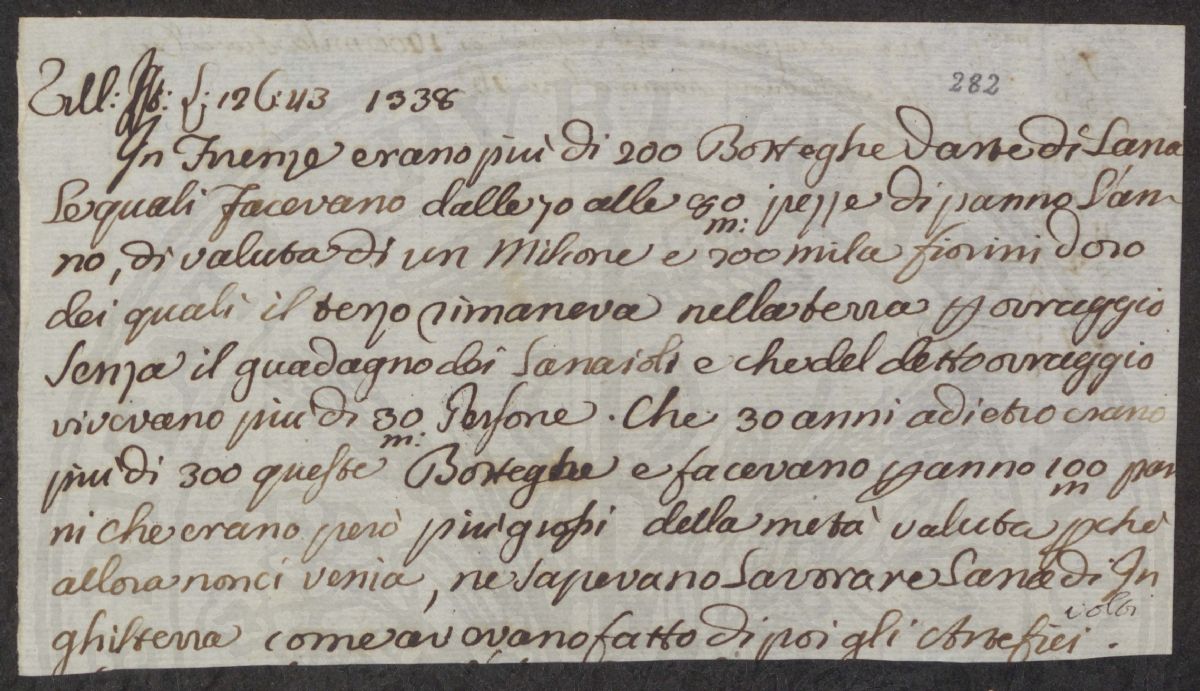 282
Vill: St: L: 126:43 1338
In Firenze erano più di 200 Botteghe d'arte di Lana
Le quali Facevano dalle 70 alle 80 m: pezze di panno L'an-
no, di valuta di un Milione e 200 mila fiorini doro
dei quali il terzo rimaneva nella terra p ovraggio
Senza il guadagno dei Lanaioli e che del detto ovraggio
vivevano più di 30 m: Persone. Che 30 anni adietro erano
più di 300 queste Botteghe e facevano p anno 100 m pan
ni che erano però più grossi della metà valuta pchè
allora non ci venia, ne sapevano Lavorare Lana di In
ghilterra come avevano fatto di poi gli Artefici.